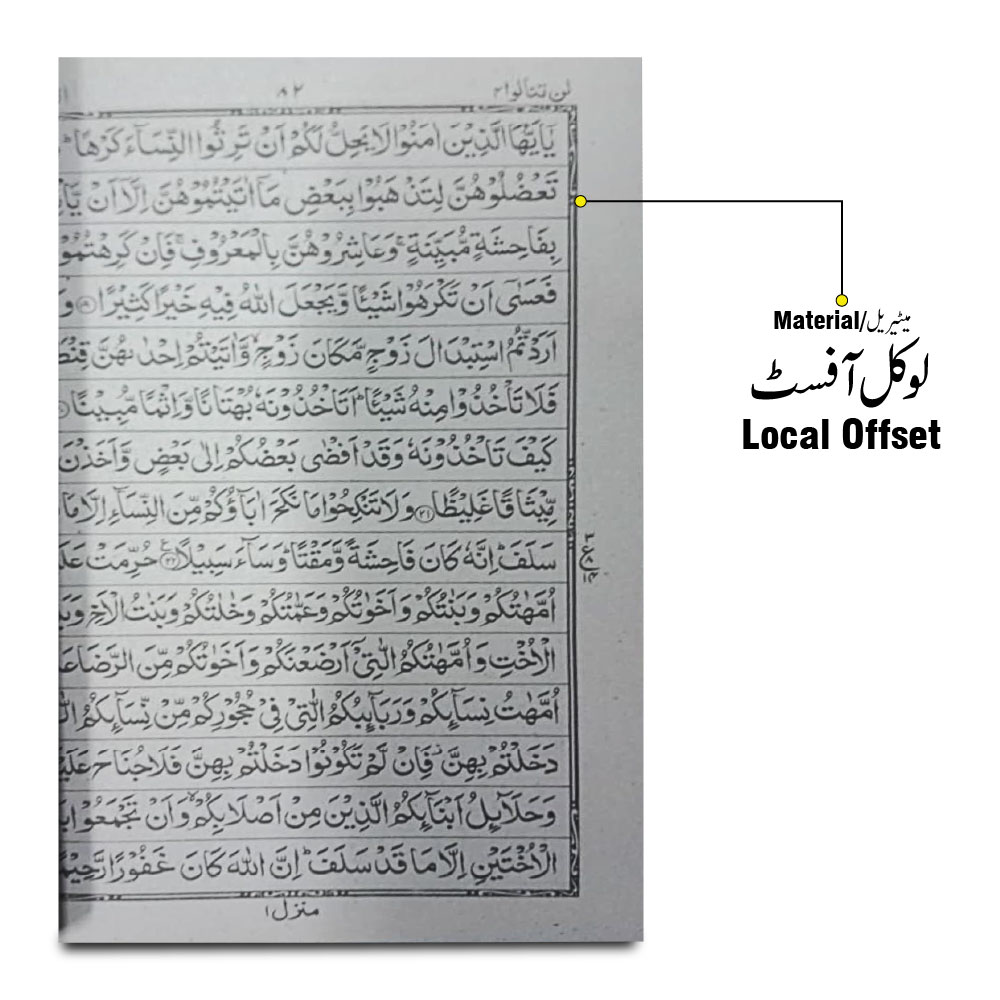 لن تنالوا ۴
۸۲
يٰۤاَيُّهَا الَّذِيْنَ اٰمَنُوْا لَا يَحِلُّ لَكُمْ اَنْ تَرِثُوا النِّسَآءَ كَرْهًا ؕ
تَعْضُلُوْهُنَّ لِتَذْهَبُوْا بِبَعْضِ مَاۤ اٰتَيْتُمُوْهُنَّ اِلَّاۤ اَنْ
بِفَاحِشَةٍ مُّبَيِّنَةٍ ۚ وَعَاشِرُوْهُنَّ بِالْمَعْرُوْفِ ۚ فَاِنْ كَرِهْتُمُوْ
فَعَسٰۤى اَنْ تَكْرَهُوْا شَيْئًا وَّيَجْعَلَ اللّٰهُ فِيْهِ خَيْرًا كَثِيْرًا ۝۱۹ وَ
اَرَدْتُّمُ اسْتِبْدَالَ زَوْجٍ مَّكَانَ زَوْجٍ ۙ وَّاٰتَيْتُمْ اِحْدٰىهُنَّ
فَلَا تَاْخُذُوْا مِنْهُ شَيْئًا ؕ اَتَاْخُذُوْنَهٗ بُهْتَانًا وَّاِثْمًا مُّبِيْنًا
كَيْفَ تَاْخُذُوْنَهٗ وَقَدْ اَفْضٰى بَعْضُكُمْ اِلٰى بَعْضٍ وَّاَخَذْنَ
مِّيْثَاقًا غَلِيْظًا ۝۲۱ وَلَا تَنْكِحُوْا مَا نَكَحَ اٰبَآؤُكُمْ مِّنَ النِّسَآءِ اِلَّا مَا
سَلَفَ ؕ اِنَّهٗ كَانَ فَاحِشَةً وَّمَقْتًا ؕ وَسَآءَ سَبِيْلًا ۝۲۲ حُرِّمَتْ
اُمَّهٰتُكُمْ وَبَنٰتُكُمْ وَاَخَوٰتُكُمْ وَعَمّٰتُكُمْ وَخٰلٰتُكُمْ وَبَنٰتُ الْاَخِ
الْاُخْتِ وَاُمَّهٰتُكُمُ الّٰتِيْۤ اَرْضَعْنَكُمْ وَاَخَوٰتُكُمْ مِّنَ
اُمَّهٰتُ نِسَآئِكُمْ وَرَبَآئِبُكُمُ الّٰتِيْ فِيْ حُجُوْرِكُمْ مِّنْ نِّسَآئِكُمُ
دَخَلْتُمْ بِهِنَّ ؗ فَاِنْ لَّمْ تَكُوْنُوْا دَخَلْتُمْ بِهِنَّ فَلَا جُنَاحَ
وَحَلَآئِلُ اَبْنَآئِكُمُ الَّذِيْنَ مِنْ اَصْلَابِكُمْ ۙ وَاَنْ تَجْمَعُوْا
الْاُخْتَيْنِ اِلَّا مَا قَدْ سَلَفَ ؕ اِنَّ اللّٰهَ كَانَ غَفُوْرًا رَّحِيْمًا
منزل ۱
Material/میٹیریل
لوکل آفسٹ
Local Offset